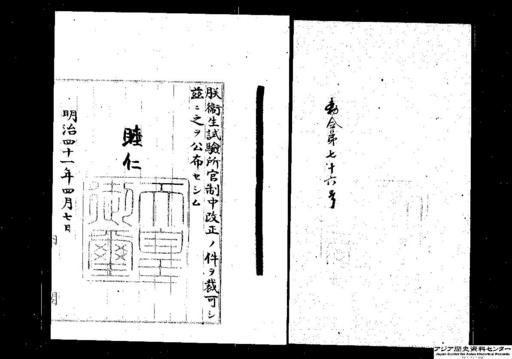 勅令第七十六号
朕衛生試験所官制中改正ノ件ヲ裁可シ
茲ニ之ヲ公布セシム
睦仁
天皇御璽
明治四十一年四月七日
内閣
アジア歴史資料センター
Japan Center for Asian Historical Records